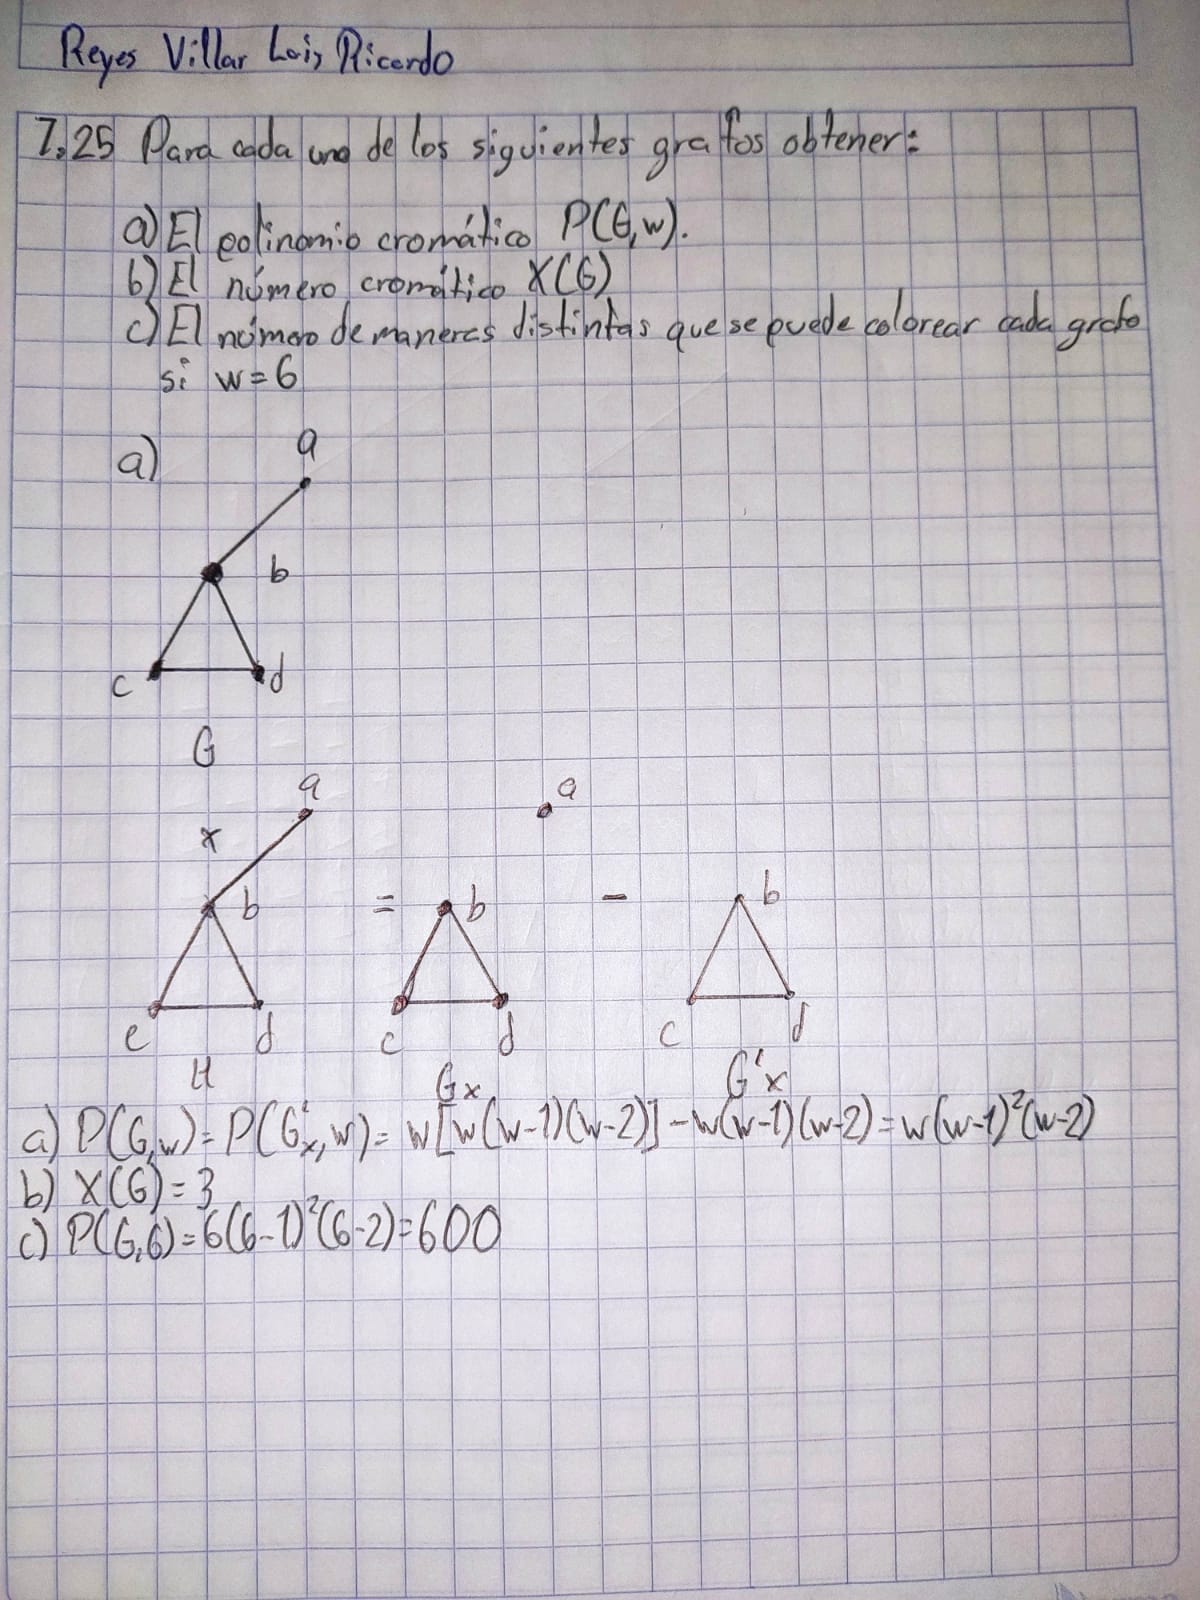 Reyes Villar Luis Ricardo
7.25 Para cada uno de los siguientes grafos obtener:
a) El polinomio cromático P(G,w).
b) El número cromático X(G)
c) El número de maneras distintas que se puede colorear cada grafo
si w=6
a)
a
b
c d
G
a a
x
b = b - b
c d c d c d
H Gx G'x
a) P(G,w)= P(G'x,w)= w[w(w-1)(w-2)]-w(w-1)(w-2)=w(w-1)²(w-2)
b) X(G)=3
c) P(G,6)=6(6-1)²(6-2)=600